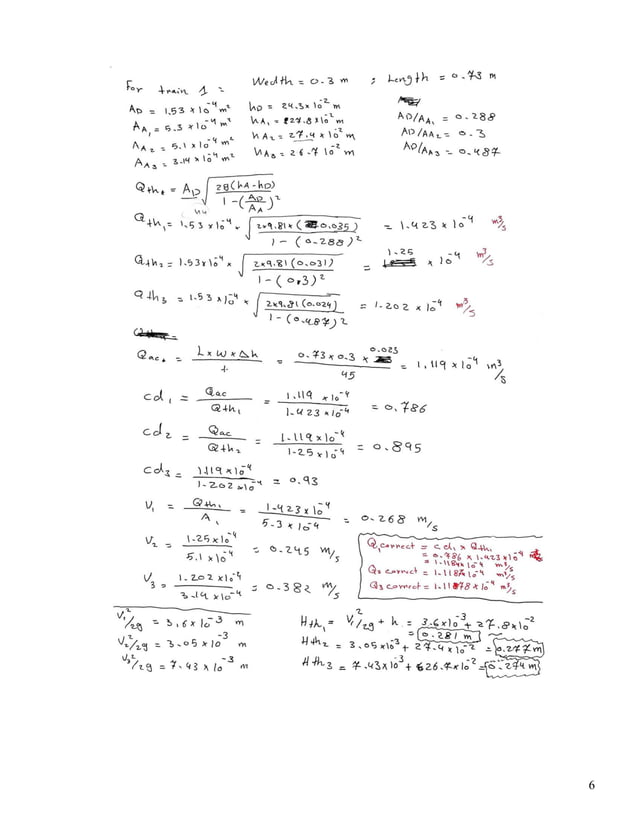 For train 1 : Wedth = 0.3 m ; Length = 0.73 m
AD = 1.53 × 10^-4 m² hD = 24.3 × 10^-2 m
AA1 = 5.3 × 10^-4 m² hA1 = 27.8 × 10^-2 m AD/AA1 = 0.288
AA2 = 5.1 × 10^-4 m² hA2 = 27.4 × 10^-2 m AD/AA2 = 0.3
AA3 = 3.14 × 10^-4 m² hA3 = 26.7 10^-2 m AD/AA3 = 0.487
Qth = AD √(2g(hA-hD) / 1-(AD/AA)²)
Qth1 = 1.53 × 10^-4 × √(2×9.81×(0.035) / 1-(0.288)²) = 1.423 × 10^-4 m³/s
Qth2 = 1.53 × 10^-4 × √(2×9.81(0.031) / 1-(0.3)²) = 1.25 × 10^-4 m³/s
Qth3 = 1.53 × 10^-4 × √(2×9.81(0.024) / 1-(0.487)²) = 1.202 × 10^-4 m³/s
Qac = L×W×Δh / t = 0.73×0.3×0.023 / 45 = 1.119 × 10^-4 m³/s
cd1 = Qac / Qth1 = 1.119 × 10^-4 / 1.423 × 10^-4 = 0.786
cd2 = Qac / Qth2 = 1.119 × 10^-4 / 1.25 × 10^-4 = 0.895
cd3 = 1.119 × 10^-4 / 1.202 × 10^-4 = 0.93
V1 = Qth1 / A1 = 1.423 × 10^-4 / 5.3 × 10^-4 = 0.268 m/s
V2 = 1.25 × 10^-4 / 5.1 × 10^-4 = 0.245 m/s
V3 = 1.202 × 10^-4 / 3.14 × 10^-4 = 0.382 m/s
Q1 correct = cd1 × Qth1
= 0.786 × 1.423 × 10^-4
= 1.1184 × 10^-4 m³/s
Q2 correct = 1.1187 × 10^-4 m³/s
Q3 correct = 1.11878 × 10^-4 m³/s
V1²/2g = 3.6 × 10^-3 m Hth1 = V1²/2g + h = 3.6×10^-3 + 27.8×10^-2
= 0.281 m
V2²/2g = 3.05 × 10^-3 m Hth2 = 3.05×10^-3 + 27.4×10^-2 = 0.277 m
V3²/2g = 7.43 × 10^-3 m Hth3 = 7.43×10^-3 + 26.7×10^-2 = 0.274 m
6